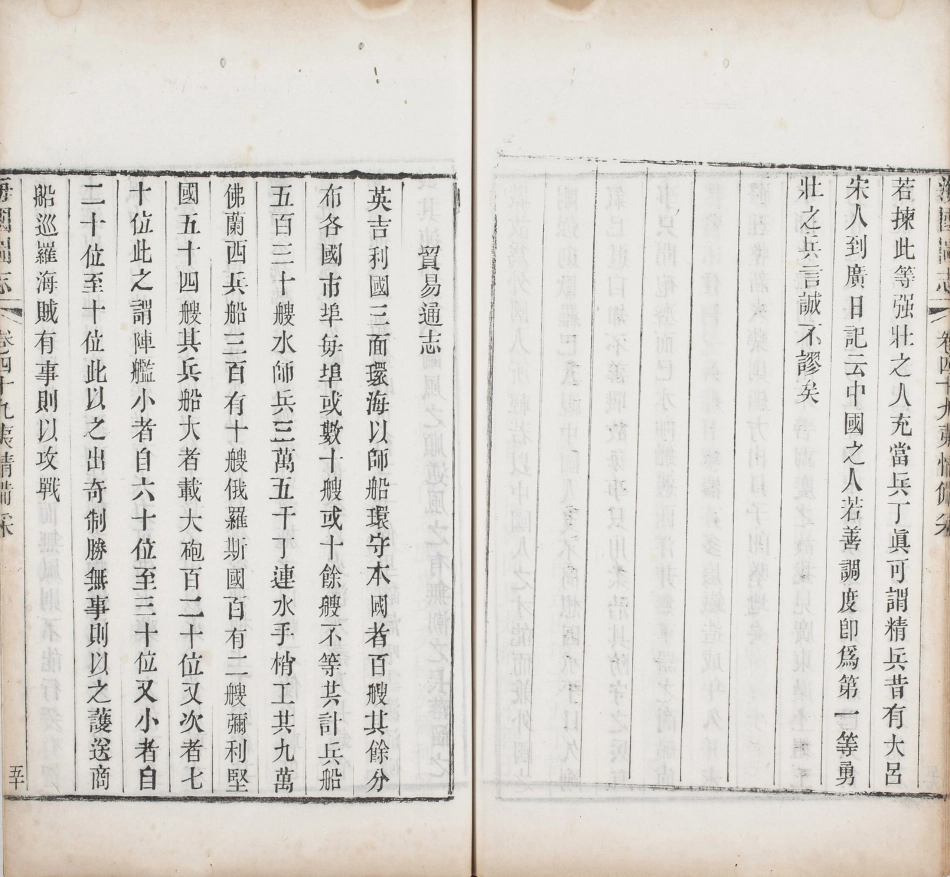 若揀此等强壯之人充當兵丁眞可謂精兵昔有大呂
宋人到廣日記云中國之人若善調度即爲第一等勇
壯之兵言誠不謬矣
海國圖志 卷四十九夷情備采
貿易通志
英吉利國三面環海以師船環守本國者百艘其餘分
布各國市埠每埠或數十艘或十餘艘不等共計兵船
五百三十艘水師兵三萬五千丁連水手梢工共九萬
佛蘭西兵船三百有十艘俄羅斯國百有三艘彌利堅
國五十四艘其兵船大者載大砲百二十位又次者七
十位此之謂陣艦小者自六十位至三十位又小者自
二十位至十位此以之出奇制勝無事則以之護送商
船巡羅海賊有事則以攻戰
海國圖志 卷四十九夷情備采 五十